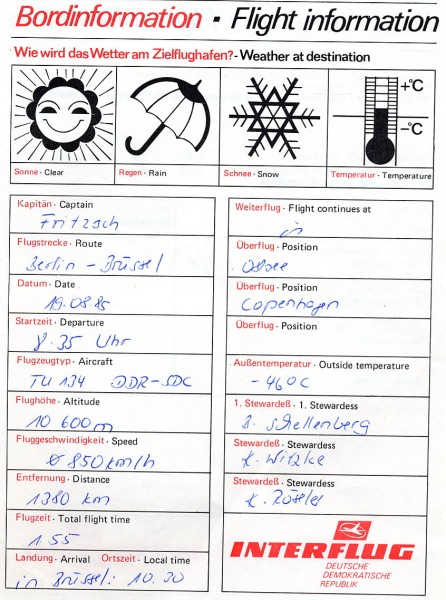 Bordinformation · Flight information
Wie wird das Wetter am Zielflughafen? - Weather at destination
+°C
-°C
Sonne · Clear
Regen · Rain
Schnee · Snow
Temperatur · Temperature
Kapitän · Captain
Fritzsch
Flugstrecke · Route
Berlin - Brüssel
Datum · Date
19.08.85
Startzeit · Departure
8.35 Uhr
Flugzeugtyp · Aircraft
TU 134 DDR-SDC
Flughöhe · Altitude
10 600m
Fluggeschwindigkeit · Speed
ø 850 km/h
Entfernung · Distance
1380 km
Flugzeit · Total flight time
1.55
Landung · Arrival Ortszeit · Local time
in Brüssel: 10.30
Weiterflug · Flight continues at
Überflug · Position
Ostsee
Überflug · Position
Copenhagen
Überflug · Position
Außentemperatur · Outside temperature
- 46°C
1. Stewardeß · 1. Stewardess
B. Schellenberg
Stewardeß · Stewardess
K. Witzke
Stewardeß · Stewardess
K. Rösler
INTERFLUG
DEUTSCHE
DEMOKRATISCHE
REPUBLIK